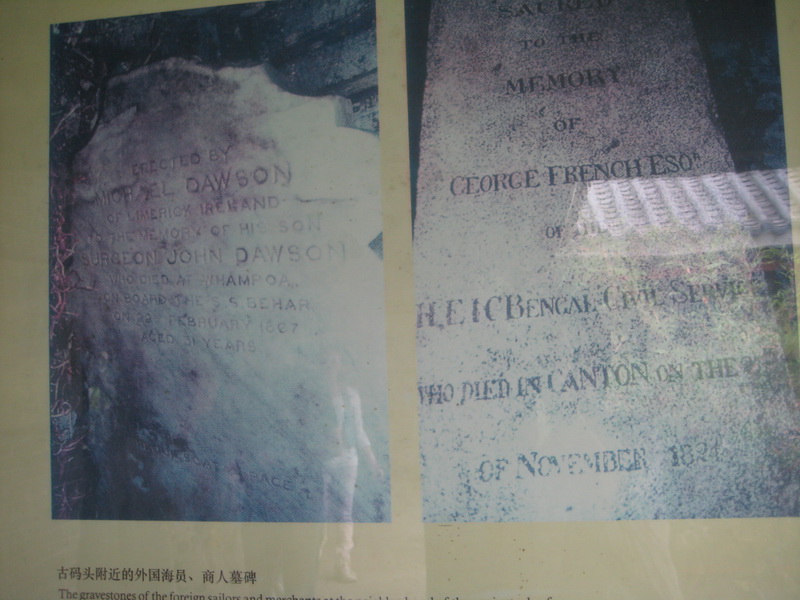 ERECTED BY
MICHAEL DAWSON
OF LIMERICK IRELAND
TO THE MEMORY OF HIS SON
SURGEON JOHN DAWSON
WHO DIED AT WHAMPOA
ON BOARD THE S.S. BEHAR
ON FEBRUARY 1867
AGED 31 YEARS
SACRED
TO THE
MEMORY
OF
GEORGE FRENCH ESQR
OF THE
H.E.I.C BENGAL CIVIL SERVICE
WHO DIED IN CANTON ON THE
OF NOVEMBER
古码头附近的外国海员、商人墓碑
The gravestones of the foreign sailors and merchants at the